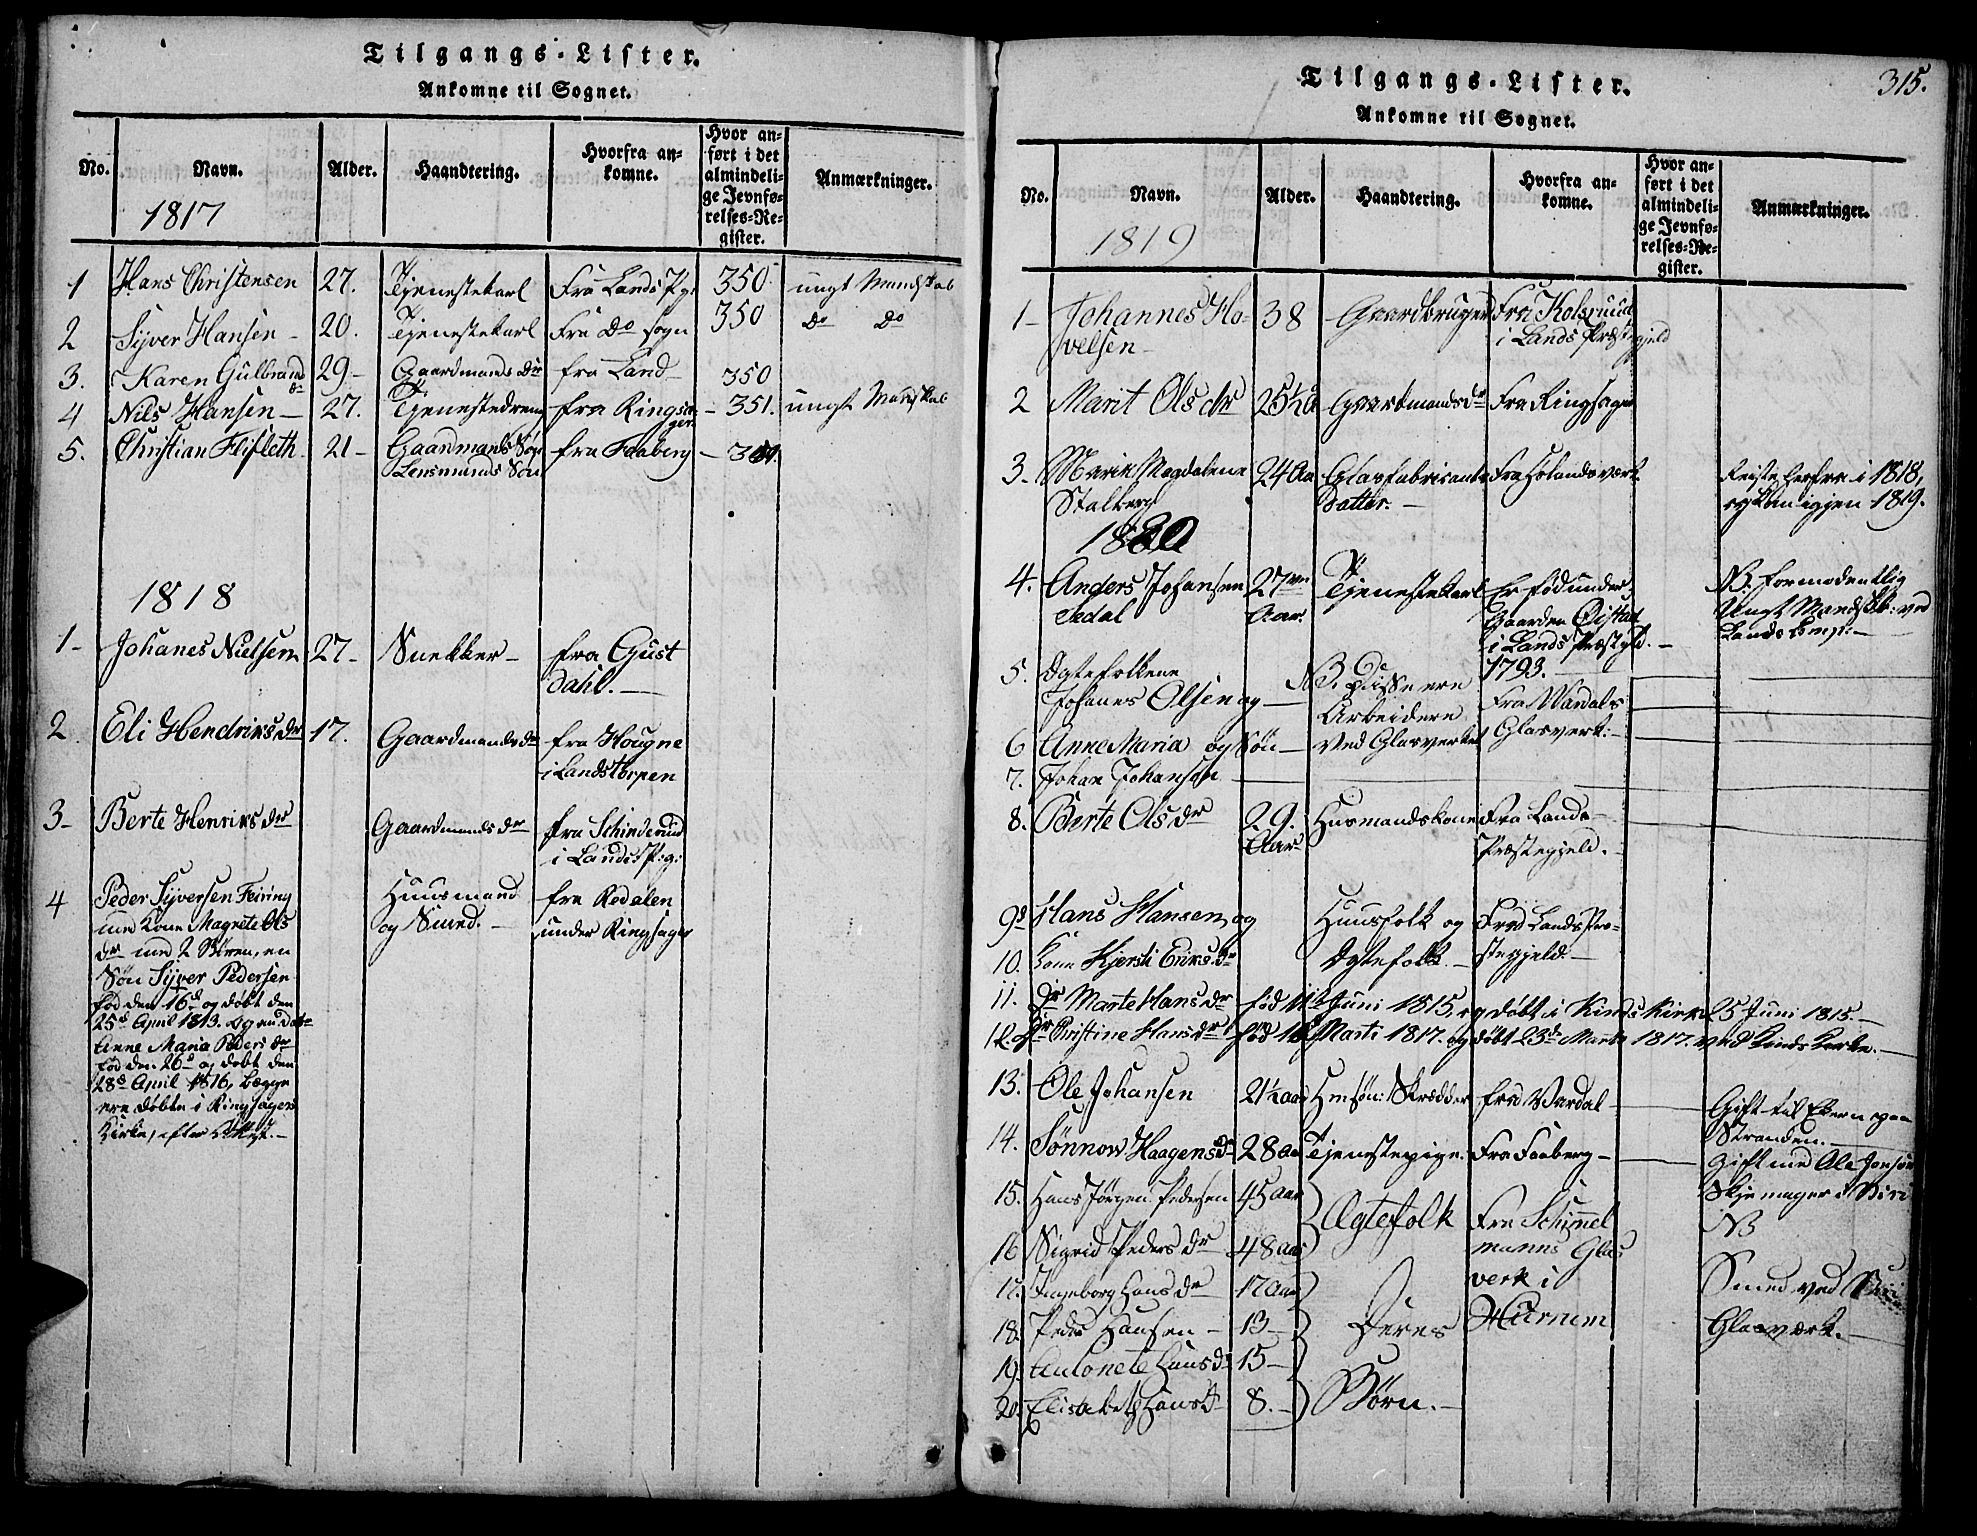 Tilgangs-Lister.
Ankomne til Sognet.
No. Navn. Alder. Haandtering. Hvorfra an-
komne. Hvor an-
ført i det
almindeli-
ge Jevnfø-
relses-Re-
gister. Anmærkninger.
1817
1 Hans Christensen 27. Tjenestekarl Fra Lands Pg: 350 ungt Mandskab
2 Syver Hansen - 20. Tjenestekarl Fra Do sogn 350 Do Do
3. Karen Gulbrands
dr 29- Gaardmands Dr fra Land- 350
4 Nils Hansen- 27. Tjenestedreng fra Ringsa-
ger - 351. ungt Mandskab
5. Christian Flifleth 21- Gaardmands Søn
Lensmands Søn fra Faaberg -
1818
1- Johanes Nielsen 27- Snekker- fra Gust
dahl.-
2 Eli Hendriks dr 17. Gaardmands dr fra Hougne
i Landstorpen
3- Berte Henriks dr Gaardmands dr fra Schinderud
i Lands P:g:
4 Peder Syversen Feiring
med Kone Magrete Ols
dr med 2 Børn, en
Søn Syver Pedersen
fød den 16d og døbt den
25d April 1813. og en datr
Anne Maria Peders dr
fød den 26d og døbt den
28d April 1816, begge
ere døbte i Ringsagers
Kirke, efter
Huusmand
og Smed.-
fra Redalen
under Ringsager
315.
Tilgangs-Lister.
Ankomne til Sognet.
No. Navn. Alder. Haandtering. Hvorfra an-
komne. Hvor an-
ført i det
almindeli-
ge Jevnfø-
relses-Re-
gister. Anmærkninger.
1819
1- Johannes Ho-
velsen- 38 Gaardbruger Fra Kolsruud
i Lands Præstegjeld
2 Marit Ols dr 25½ a Gaardmands dr Fra Ringsager
3- Marie Magdalena
Stalberg 24 Aar Glasfabrikants
Datter.- Fra Holandsværk. Reiste herfra i 1818,
og kom igjen 1819.
1820
4. Anders Johansen
Sedal 27
Aar. Tjenestekarl Er født under
Gaarden Øistad
i Lands Præstgd.-
1793.- NB. formodentlig
Ungt Mandskb: ved
Lands Comp:-
5. Ægtefolkene
Johanes Olsen og- NB. Disse ere
Arbeidere
Ved Glasverket Fra Wardals
Glasverk:-
6 Anne Maria og Søn-
7. Johan Johansen
8. Berte Ols dr 29.
Aar Husmandskone Fra Lands-
Præstegjeld.-
9d Hans Hansen, og
10. Kone Kjersti Eriks dr Huusfolk og
Ægtefolk.- Fra Lands Præ-
stegjeld.-
11. Dr Marte Hans dr fød 11te Juni 1815, og døbt i Kinds Kirke 25 Juni 1815.-
12. Dr Christine Hans dr fød 16 Marti 1817. og døbt 23de Marti 1817. ved Kinds Kirke.-
13. Ole Johansen 21½ aar Skrædder fra Vardal- Gift til Ekern paa
Stranden.-
14. Sønnow Haagens dr 28 Aar Tjenestepige. Fra Faaberg- Gift med Ole Jonsen
Skjemager i Biri
15. Hans Jørgen Pedersen 45 aar
16 Sigrid Peders dr 48 aar Ægtefolk Fra Schimmel
manns Glas
verk i
Hurnum NB
Smed ved Biri
Glasværk.-
17. Ingeborg Hans dr 17 Aar
18. Peder Hansen- 13-
19. Antonete Hans dr 15-
20. Elisabeth Hans dr 8.-
Deres
Børn.-